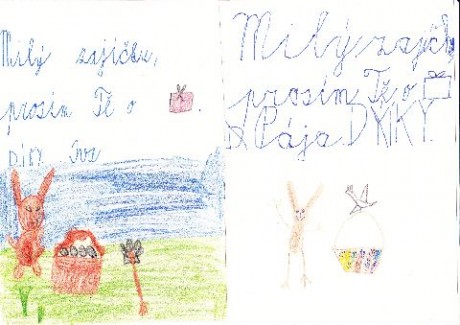 Milý zajíčku,
prosím Tě o .
DÍKY
Milý zajíčk
prosím Tě o
Pája DYKY